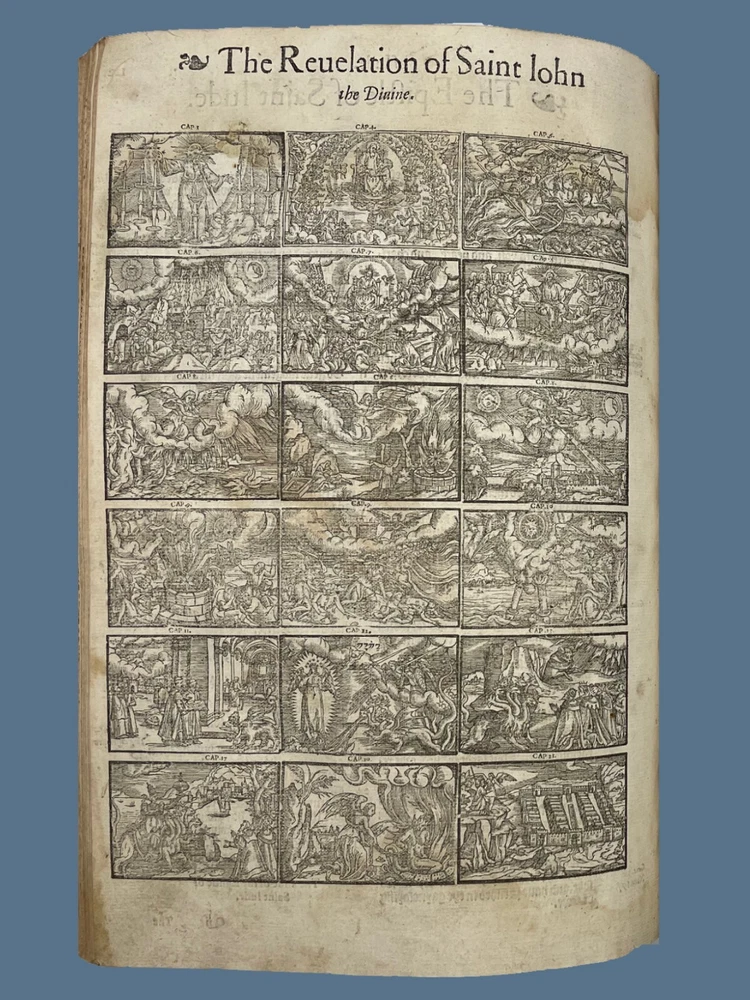 The Reuelation of Saint Iohn
the Diuine.
CAP.1
CAP.4.
CAP.6.
CAP.6.
CAP.7.
CAP.8.
CAP.8.
CAP.9.
CAP.9.
CAP.10
CAP.11.
CAP.12.
CAP.13.
CAP.17
CAP.20.
CAP.21.